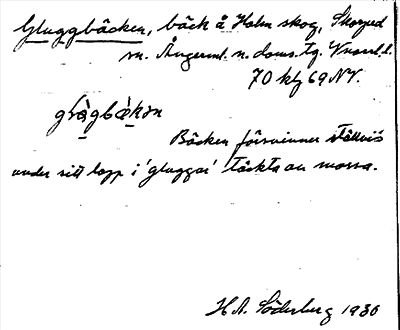 Gluggbäcken, bäck å Holm skog, Skorped
sn. Ångerml. n. doms. tg. Vnorrl. l.
70 kbf 69 NV.
gložgbækən
Bäcken försvinner ställvis
under sitt lopp i 'gluggar' täckta av mossa.
H. A. Söderberg 1930